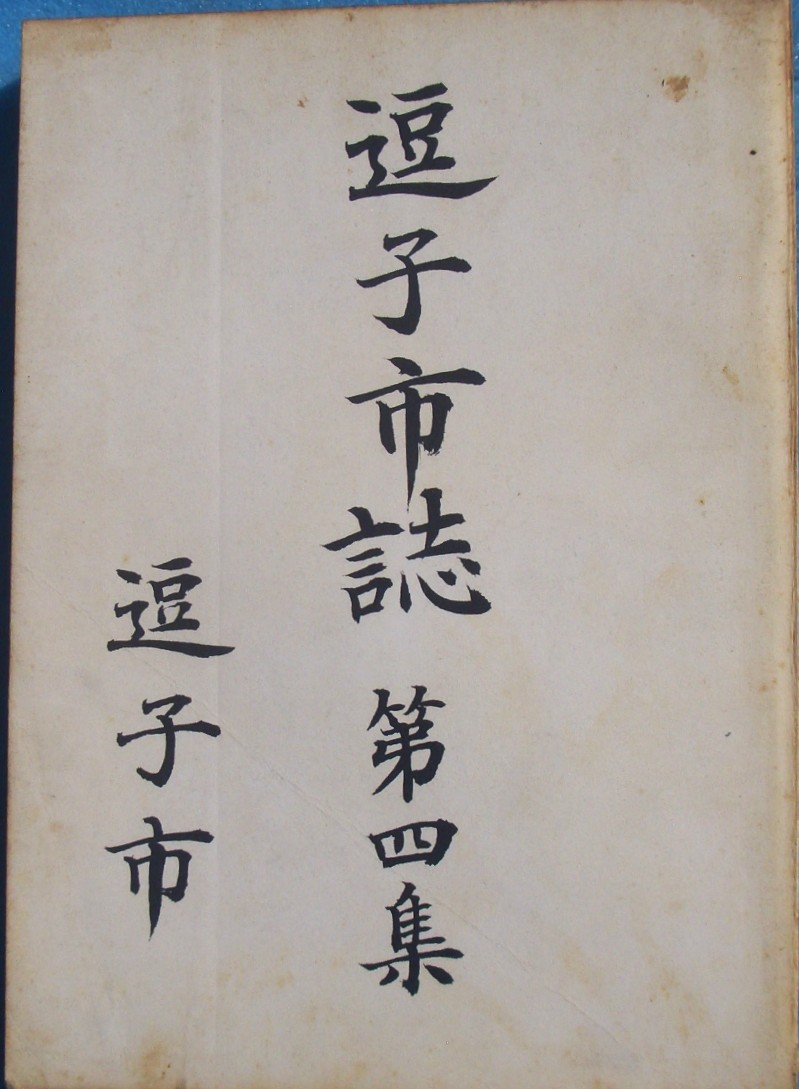 逗子市誌 第四集
逗子市